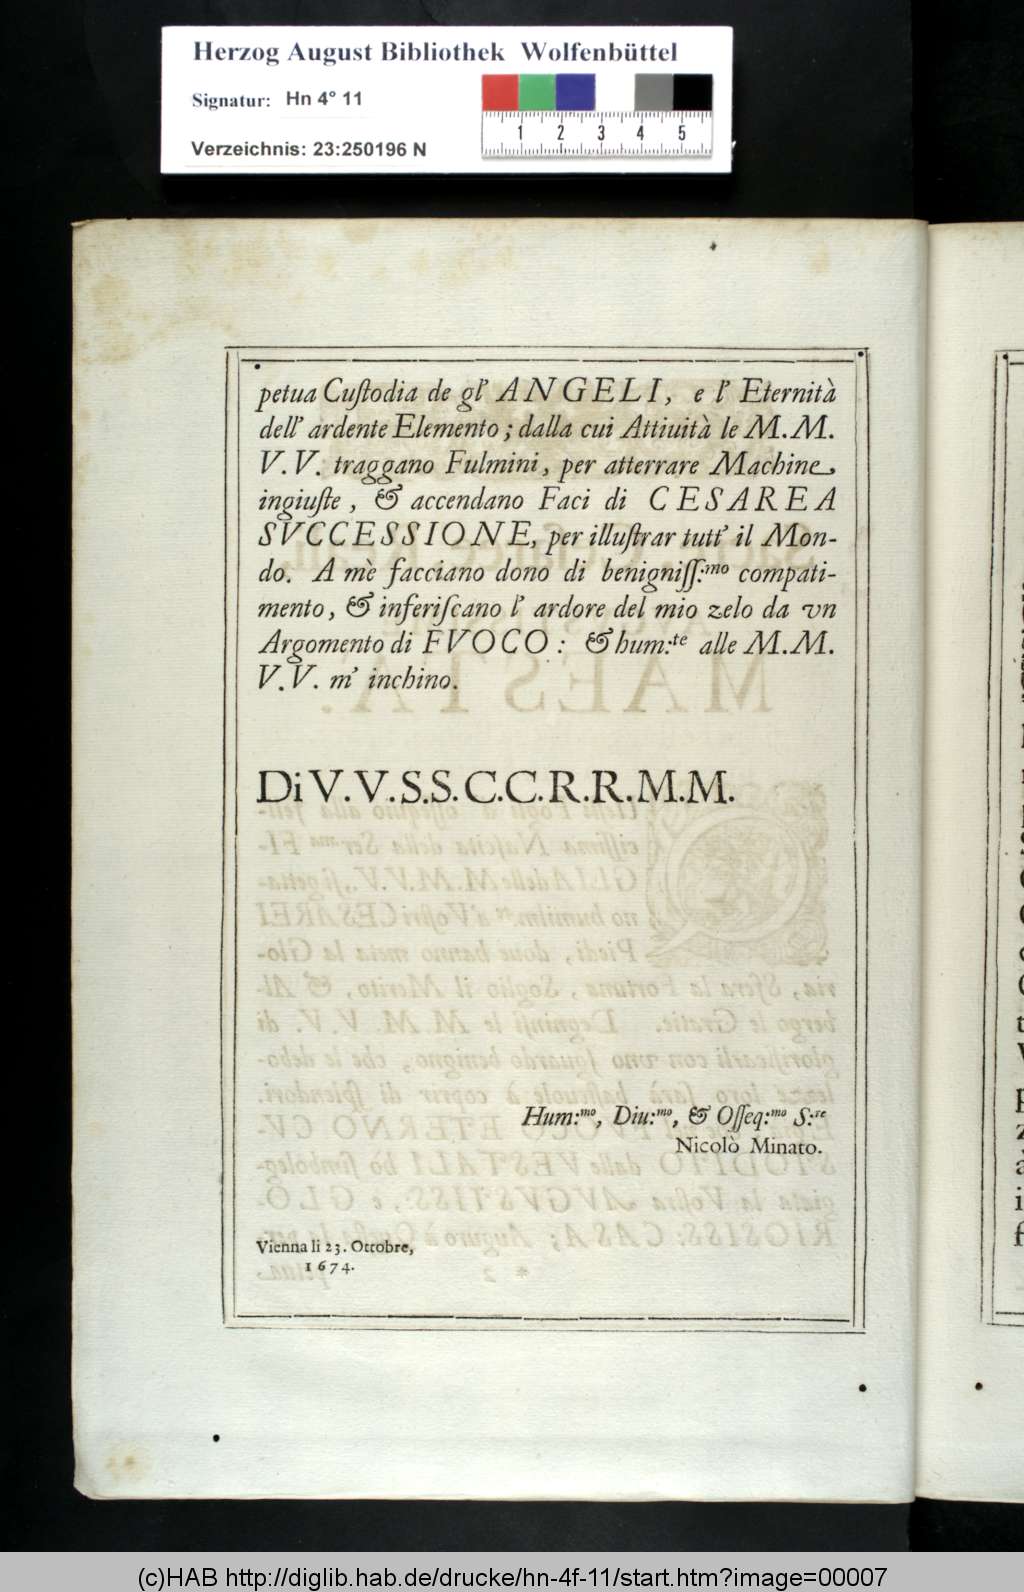 Herzog August Bibliothek Wolfenbüttel
Signatur: Hn 4° 11
1 2 3 4 5
Verzeichnis: 23:250196 N
petua Cuſtodia de gl' ANGELI, e l' Eternità
dell' ardente Elemento; dalla cui Attiuità le M.M.
V.V. traggano Fulmini, per atterrare Machine
ingiuſte, & accendano Faci di CESAREA
SVCCESSIONE, per illuſtrar tutt' il Mon-
do. A mè facciano dono di benigniſſ:mo compati-
mento, & inferiſcano l' ardore del mio zelo da vn
Argomento di FVOCO: & hum:te alle M.M.
V.V. m' inchino.
Di V.V.S.S.C.C.R.R.M.M.
Hum:mo, Diu:mo, & Oſſeq:mo S:re
Nicolò Minato.
Vienna li 23. Ottobre,
1674.
(c)HAB http://diglib.hab.de/drucke/hn-4f-11/start.htm?image=00007